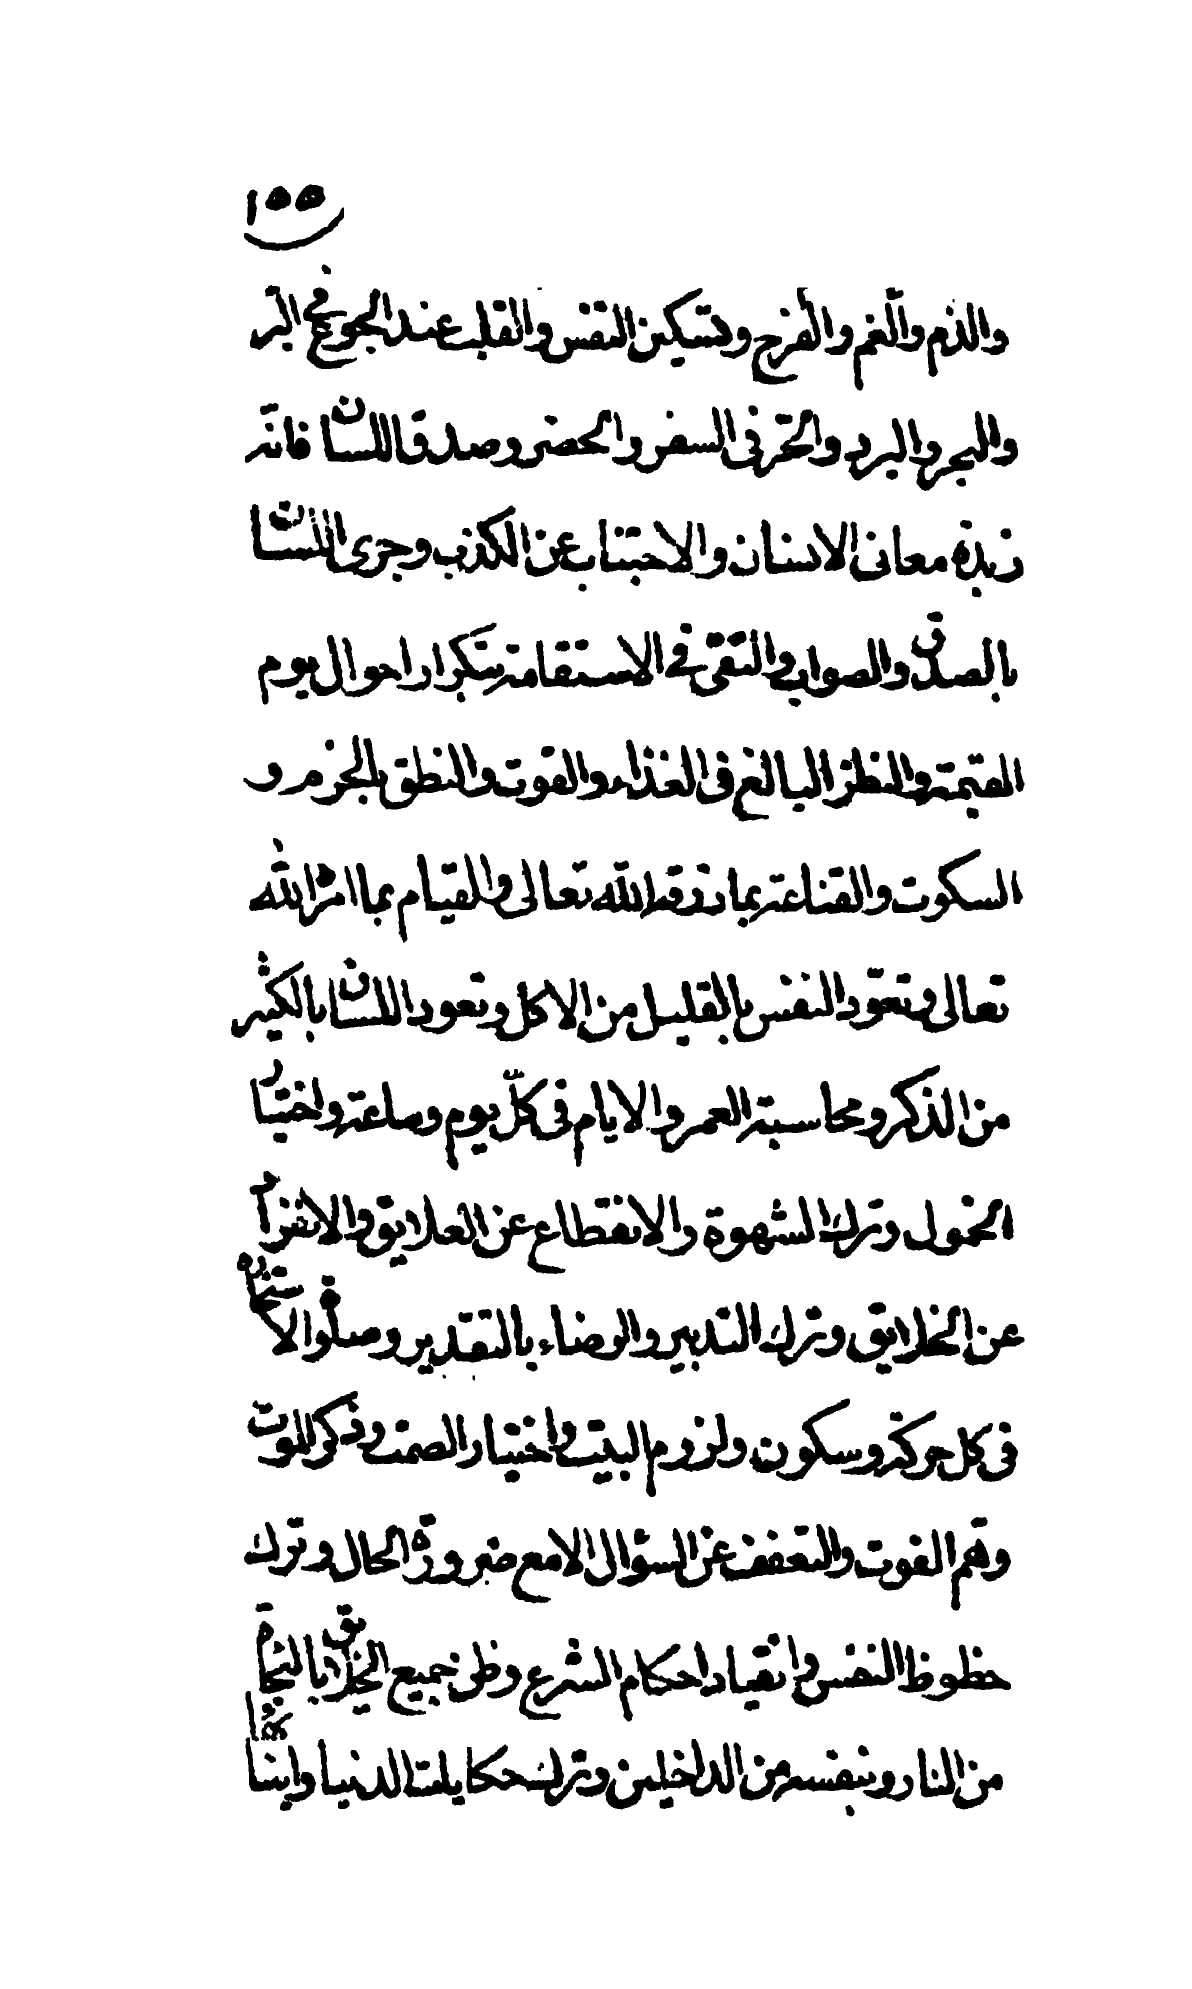 ١٥٥
والذم والغم والفرح وتسكين النفس والقلب عند الجوع في البر
والبحر والبرد والحر في السفر والحضر وصدق اللسان فانه
زبدة معاني الانسان والاجتناب عن الكذب وجرى اللسان
بالصدق والصواب والتقى في الاستقامة بتكرار احوال يوم
القيمة والنظر البالغ في الغذاء والقوت والنطق بالجزم و
السكوت والقناعة بما رزقه الله تعالى والقيام بما امر الله
تعالى وتعود النفس بالقليل من الاكل وتعود اللسان بالكثير
من الذكر ومحاسبة العمر والايام في كلّ يوم وساعة واختيار
الخمول وترك الشهوة والانقطاع عن العلايق والانفراد
عن الخلايق وترك التدبير والرضاء بالتقدير وصلوة الاستخارة
في كل حركة وسكون ولزوم البيت واختيار الصمت وذكر الموت
وهم القوت والتعفف عن السؤال الا مع ضرورة الحال وترك
حظوظ النفس وانقياد احكام الشرع وظن جميع الخلايق بالنجاة
من النار وبنفسه من الداخلين وترك حكايات الدنيا وابنا